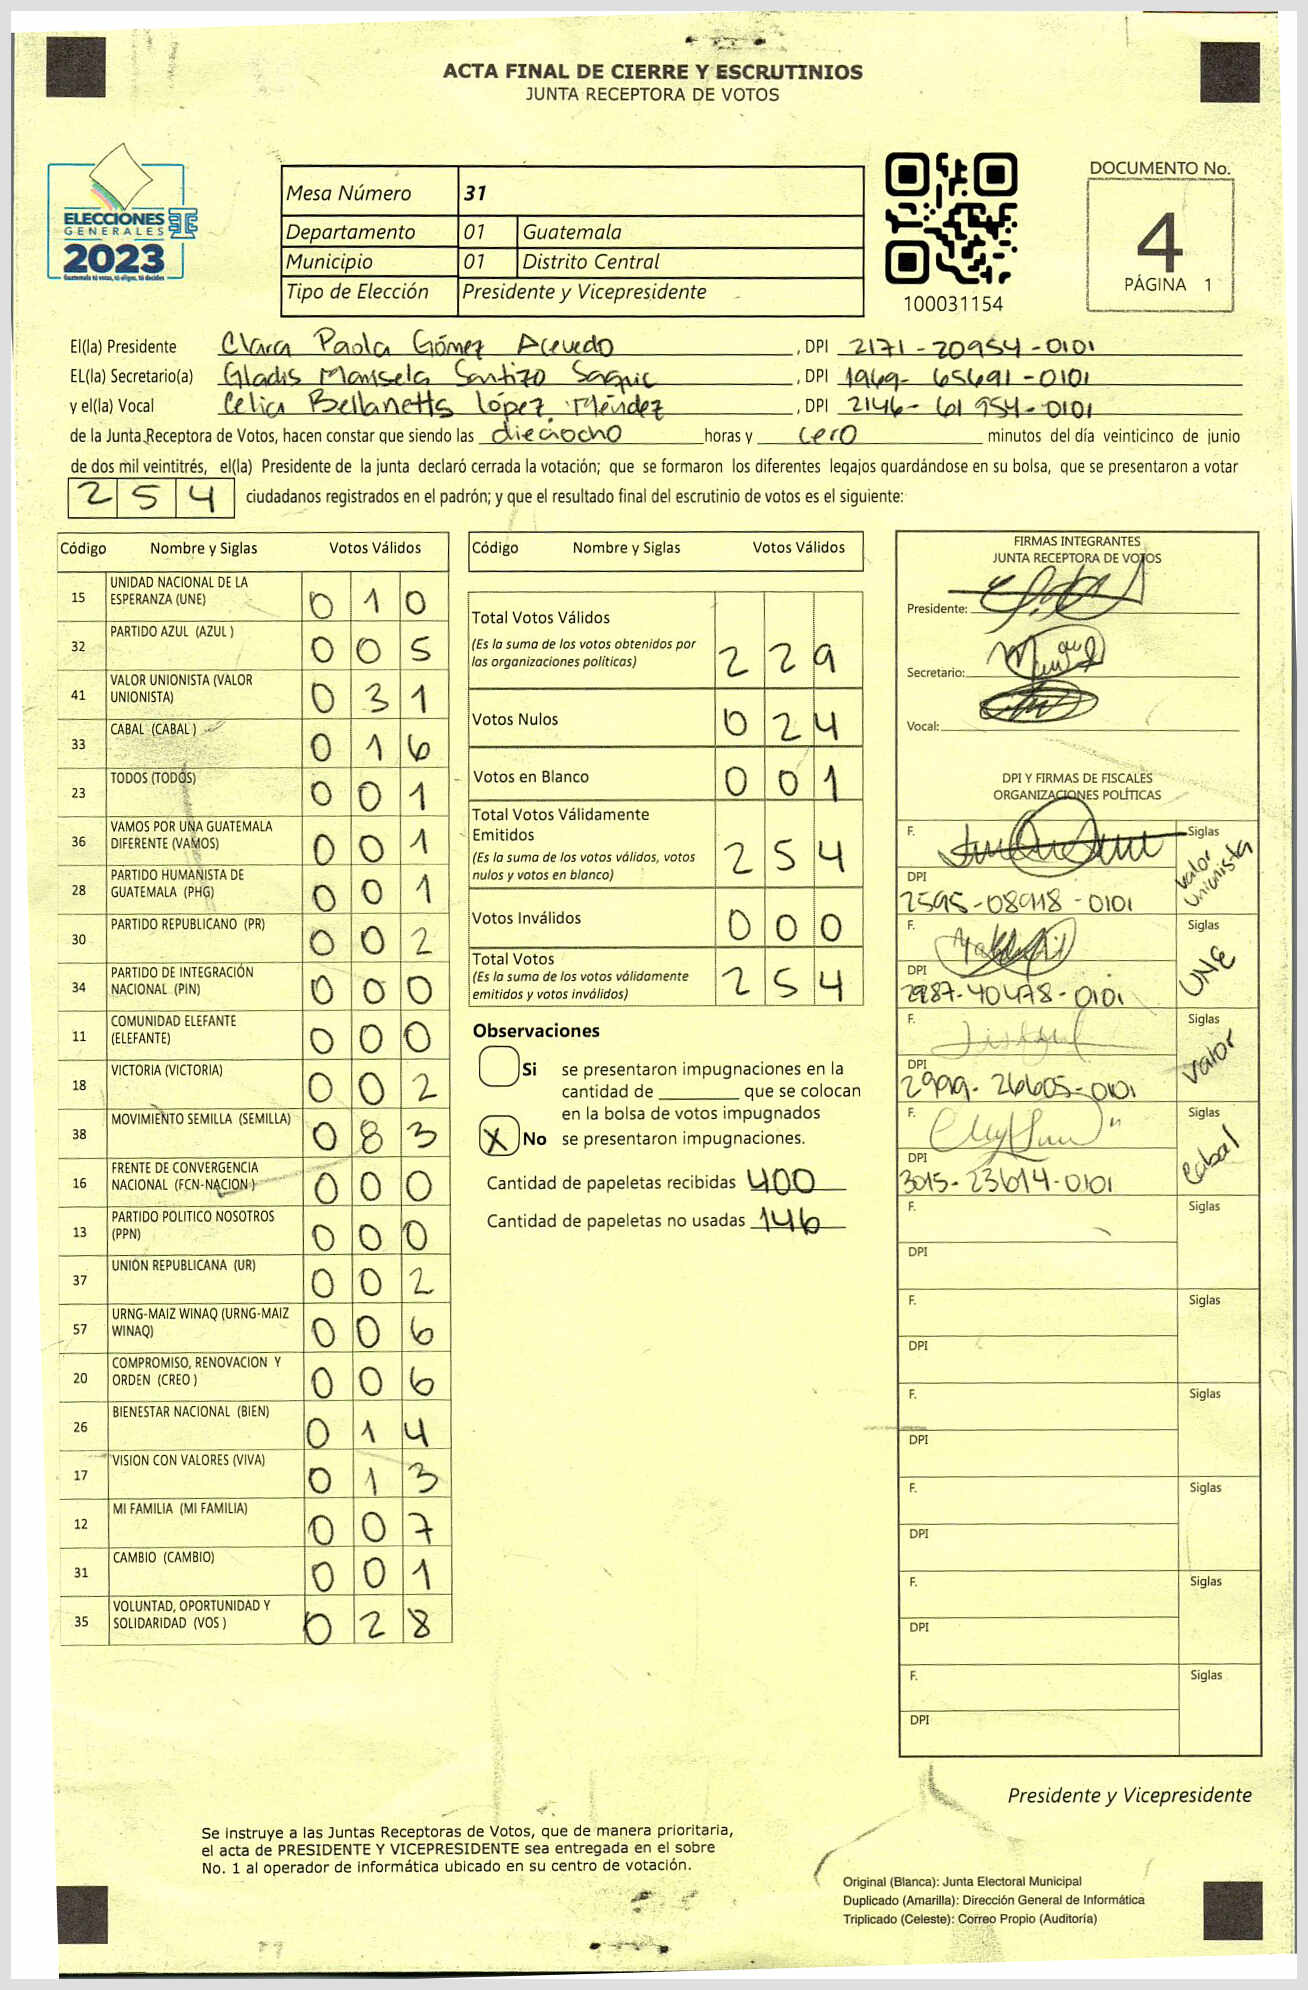 ACTA FINAL DE CIERRE Y ESCRUTINIOS
JUNTA RECEPTORA DE VOTOS
ELECCIONES
GENERALES
2023
Guatemala tú votas, tú eliges, tú decides
Mesa Número 31
Departamento 01 Guatemala
Municipio 01 Distrito Central
Tipo de Elección Presidente y Vicepresidente
100031154
DOCUMENTO No.
4
PÁGINA 1
El(la) Presidente Clara Paola Gómez Acevedo , DPI 2171-20954-0101
EL(la) Secretario(a) Gladis Marisela Santizo Saquic , DPI 1969-65691-0101
y el(la) Vocal Celia Bellanetts López Méndez , DPI 2146-61954-0101
de la Junta Receptora de Votos, hacen constar que siendo las dieciocho horas y cero minutos del día veinticinco de junio
de dos mil veintitrés, el(la) Presidente de la junta declaró cerrada la votación; que se formaron los diferentes legajos guardándose en su bolsa, que se presentaron a votar
254 ciudadanos registrados en el padrón; y que el resultado final del escrutinio de votos es el siguiente:
Código Nombre y Siglas Votos Válidos
15 UNIDAD NACIONAL DE LA ESPERANZA (UNE) 010
32 PARTIDO AZUL (AZUL ) 005
41 VALOR UNIONISTA (VALOR UNIONISTA) 031
33 CABAL (CABAL ) 016
23 TODOS (TODOS) 001
36 VAMOS POR UNA GUATEMALA DIFERENTE (VAMOS) 001
28 PARTIDO HUMANISTA DE GUATEMALA (PHG) 001
30 PARTIDO REPUBLICANO (PR) 002
34 PARTIDO DE INTEGRACIÓN NACIONAL (PIN) 000
11 COMUNIDAD ELEFANTE (ELEFANTE) 000
18 VICTORIA (VICTORIA) 002
38 MOVIMIENTO SEMILLA (SEMILLA) 083
16 FRENTE DE CONVERGENCIA NACIONAL (FCN-NACION ) 000
13 PARTIDO POLITICO NOSOTROS (PPN) 000
37 UNIÓN REPUBLICANA (UR) 002
57 URNG-MAIZ WINAQ (URNG-MAIZ WINAQ) 006
20 COMPROMISO, RENOVACION Y ORDEN (CREO ) 006
26 BIENESTAR NACIONAL (BIEN) 014
17 VISION CON VALORES (VIVA) 013
12 MI FAMILIA (MI FAMILIA) 007
31 CAMBIO (CAMBIO) 001
35 VOLUNTAD, OPORTUNIDAD Y SOLIDARIDAD (VOS ) 028
Código Nombre y Siglas Votos Válidos
Total Votos Válidos
(Es la suma de los votos obtenidos por las organizaciones políticas) 229
Votos Nulos 024
Votos en Blanco 001
Total Votos Válidamente Emitidos
(Es la suma de los votos válidos, votos nulos y votos en blanco) 254
Votos Inválidos 000
Total Votos
(Es la suma de los votos válidamente emitidos y votos inválidos) 254
Observaciones
Si se presentaron impugnaciones en la
cantidad de ________ que se colocan
en la bolsa de votos impugnados
X No se presentaron impugnaciones.
Cantidad de papeletas recibidas 400
Cantidad de papeletas no usadas 146
FIRMAS INTEGRANTES
JUNTA RECEPTORA DE VOTOS
Presidente:
Secretario:
Vocal:
DPI Y FIRMAS DE FISCALES
ORGANIZACIONES POLÍTICAS
F. Siglas
Valor Unionista
DPI
2595-08918-0101
F. Siglas
UNE
DPI
2987-40478-0101
F. Siglas
Valor
DPI
2999-26605-0101
F. Siglas
Cabal
DPI
3015-23614-0101
F. Siglas
DPI
F. Siglas
DPI
F. Siglas
DPI
F. Siglas
DPI
F. Siglas
DPI
F. Siglas
DPI
Presidente y Vicepresidente
Se instruye a las Juntas Receptoras de Votos, que de manera prioritaria,
el acta de PRESIDENTE Y VICEPRESIDENTE sea entregada en el sobre
No. 1 al operador de informática ubicado en su centro de votación.
Original (Blanca): Junta Electoral Municipal
Duplicado (Amarilla): Dirección General de Informática
Triplicado (Celeste): Correo Propio (Auditoría)